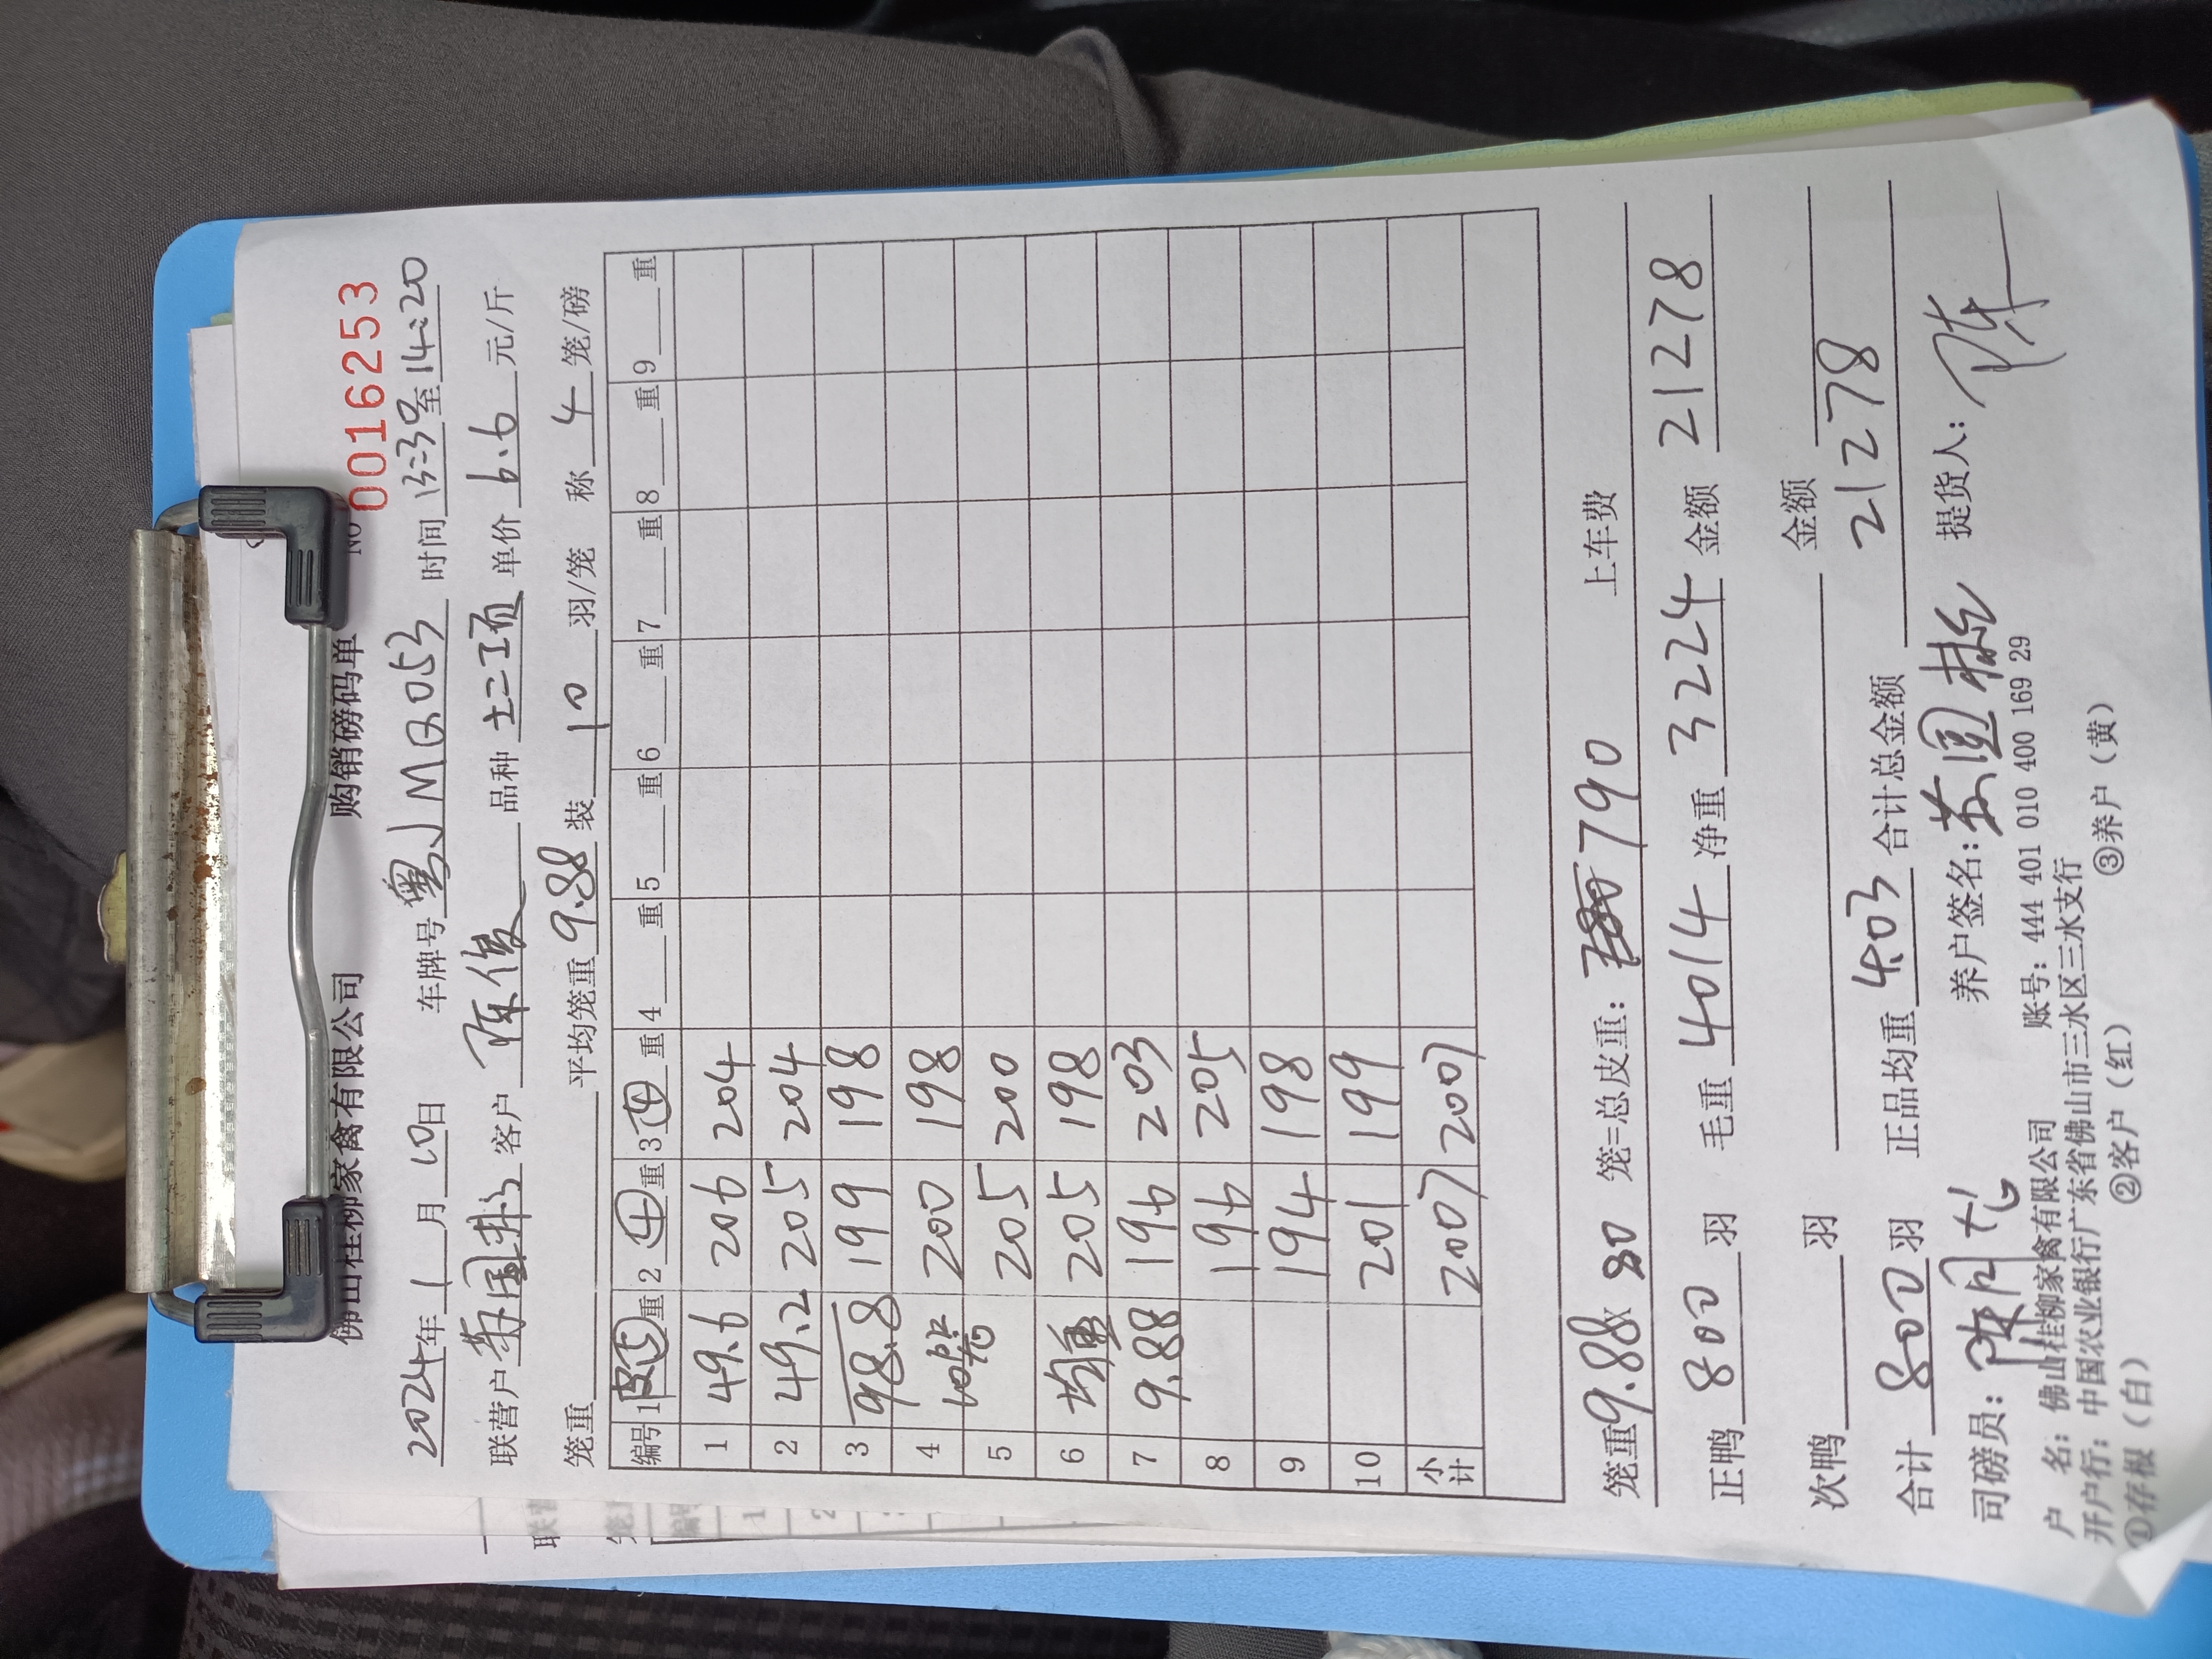 佛山桂柳家禽有限公司 购销磅码单 NO 0016253
2024年1月10日 车牌号粤JMQ053 时间13:30至14:20
联营户 客户陈俊 品种土二项 单价6.6元/斤
笼重 平均笼重9.88装10羽/笼 称4笼/磅
编号 1皮5重 2④重 3④重 4重 5重 6重 7重 8重 9重
1 49.6 206 204
2 49.2 205 204
3 98.8 199 198
4 10笼 200 198
5 205 200
6 均重 205 198
7 9.88 196 203
8 196 205
9 194 198
10 201 199
小计 2007 2007
笼重9.88×80笼=总皮重:790 上车费
正鸭800羽 毛重4014净重3224金额21278
次鸭 羽 金额
合计800羽 正品均重4.03合计总金额21278
司磅员: 养户签名: 提货人:陈
户 名:佛山桂柳家禽有限公司 账号:444 401 010 400 169 29
开户行:中国农业银行广东省佛山市三水区三水支行
①存根(白) ②客户(红) ③养户(黄)